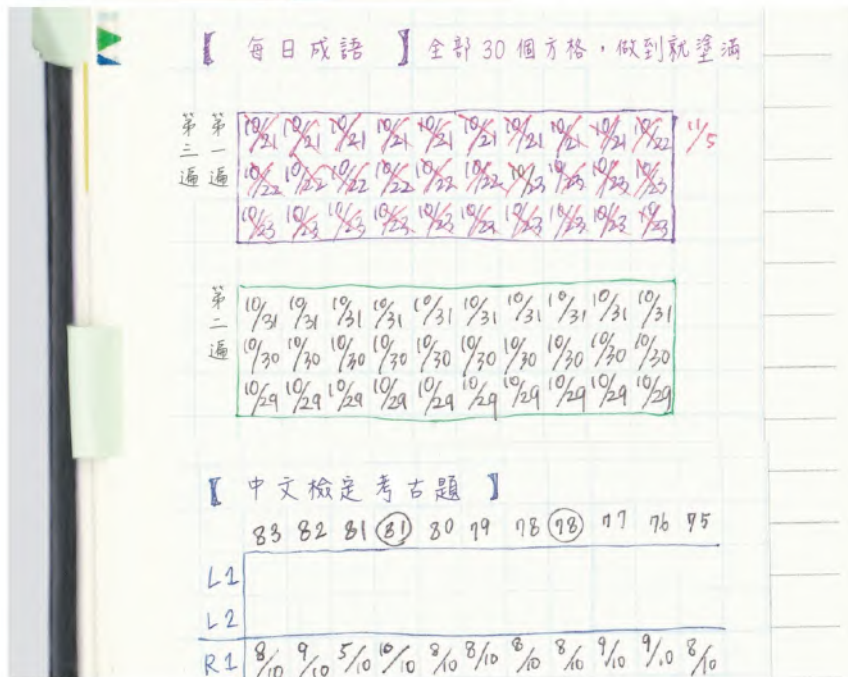 【 每日成語 】全部30個方格，做到就塗滿
第一遍
第三遍
10/21 10/21 10/21 10/21 10/21 10/21 10/21 10/21 10/21 10/22 11/5
10/22 10/22 10/22 10/22 10/22 10/22 10/23 10/23 10/23 10/23
10/23 10/23 10/23 10/23 10/23 10/23 10/23 10/23 10/23 10/23
第二遍
10/31 10/31 10/31 10/31 10/31 10/31 10/31 10/31 10/31 10/31
10/30 10/30 10/30 10/30 10/30 10/30 10/30 10/30 10/30 10/30
10/29 10/29 10/29 10/29 10/29 10/29 10/29 10/29 10/29 10/29
【 中文檢定考古題 】
83 82 81 81 80 79 78 78 77 76 75
L1
L2
R1 8/10 9/10 5/10 10/10 8/10 8/10 8/10 8/10 9/10 9/10 8/10